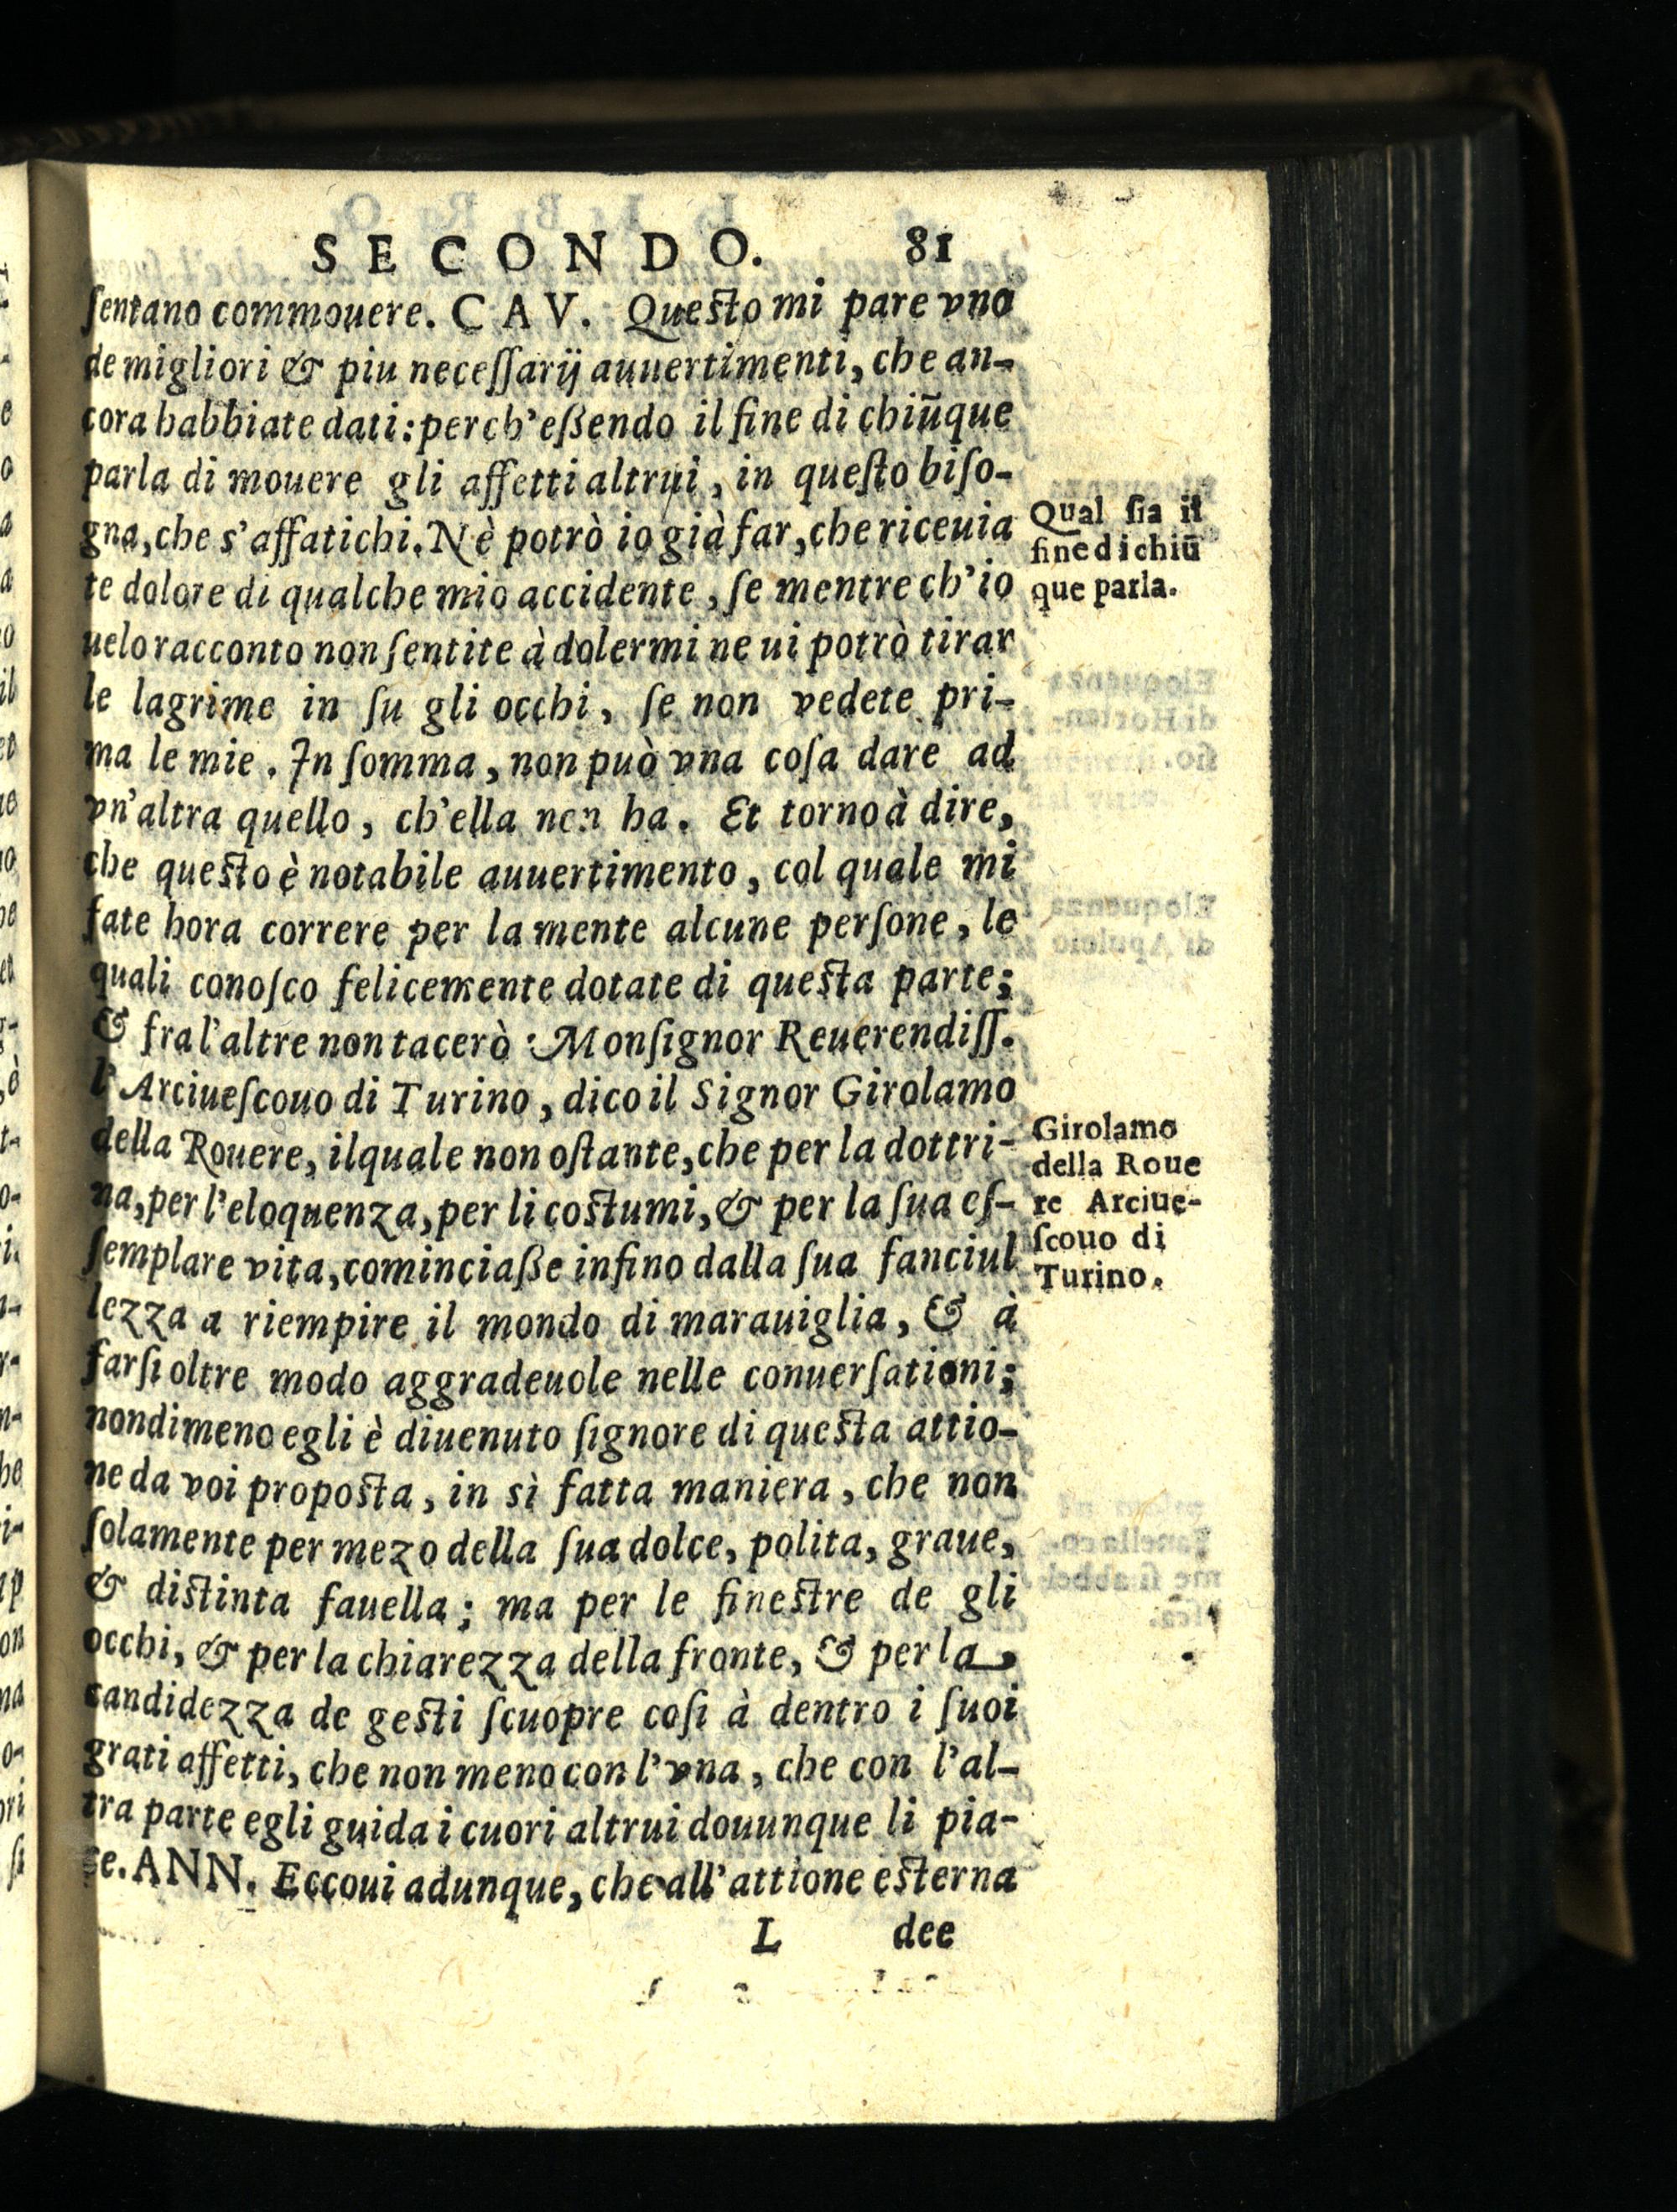 SECONDO. 81
ſentano commouere. CAV. Queſto mi pare vno
de migliori & piu neceſſarij auuertimenti, che an-
cora habbiate dati: perch'eßendo il fine di chiūque
parla di mouere gli affetti altrui, in queſto biſo-
gna, che s'affatichi. Nè potrò io già far, che riceuia
te dolore di qualche mio accidente, ſe mentre ch'io
uelo racconto non ſentite à dolermi ne ui potrò tirar
le lagrime in ſu gli occhi, ſe non vedete pri-
ma le mie. In ſomma, non può vna coſa dare ad
vn'altra quello, ch'ella non ha. Et torno à dire,
che queſto è notabile auuertimento, col quale mi
fate hora correre per la mente alcune perſone, le
quali conoſco felicemente dotate di queſta parte;
& fra l'altre non tacerò Monſignor Reuerendiſſ.
l'Arciueſcouo di Turino, dico il Signor Girolamo
della Rouere, ilquale non oſtante, che per la dottri-
na, per l'eloquenza, per li coſtumi, & per la ſua eſ-
ſemplare vita, cominciaße infino dalla ſua fanciul
lezza a riempire il mondo di marauiglia, & à
farſi oltre modo aggradeuole nelle conuerſationi;
nondimeno egli è diuenuto ſignore di queſta attio-
ne da voi propoſta, in sì fatta maniera, che non
ſolamente per mezo della ſua dolce, polita, graue,
& diſtinta fauella; ma per le fineſtre de gli
occhi, & per la chiarezza della fronte, & per la
candidezza de geſti ſcuopre coſi à dentro i ſuoi
grati affetti, che non meno con l'vna, che con l'al-
tra parte egli guida i cuori altrui douunque li pia-
ce. ANN. Eccoui adunque, che all'attione eſterna
L dee
Qual ſia il
fine di chiū
que parla.
Girolamo
della Roue
re Arciue-
ſcouo di
Turino.